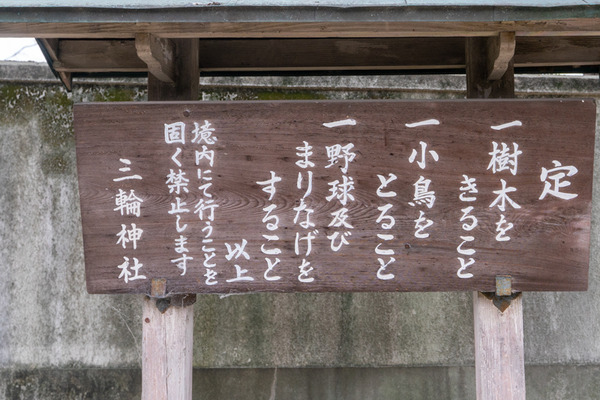 定
一樹木を
きること
一小鳥を
とること
一野球及び
まりなげを
すること
以上
境内にて行うことを
固く禁止します
三輪神社